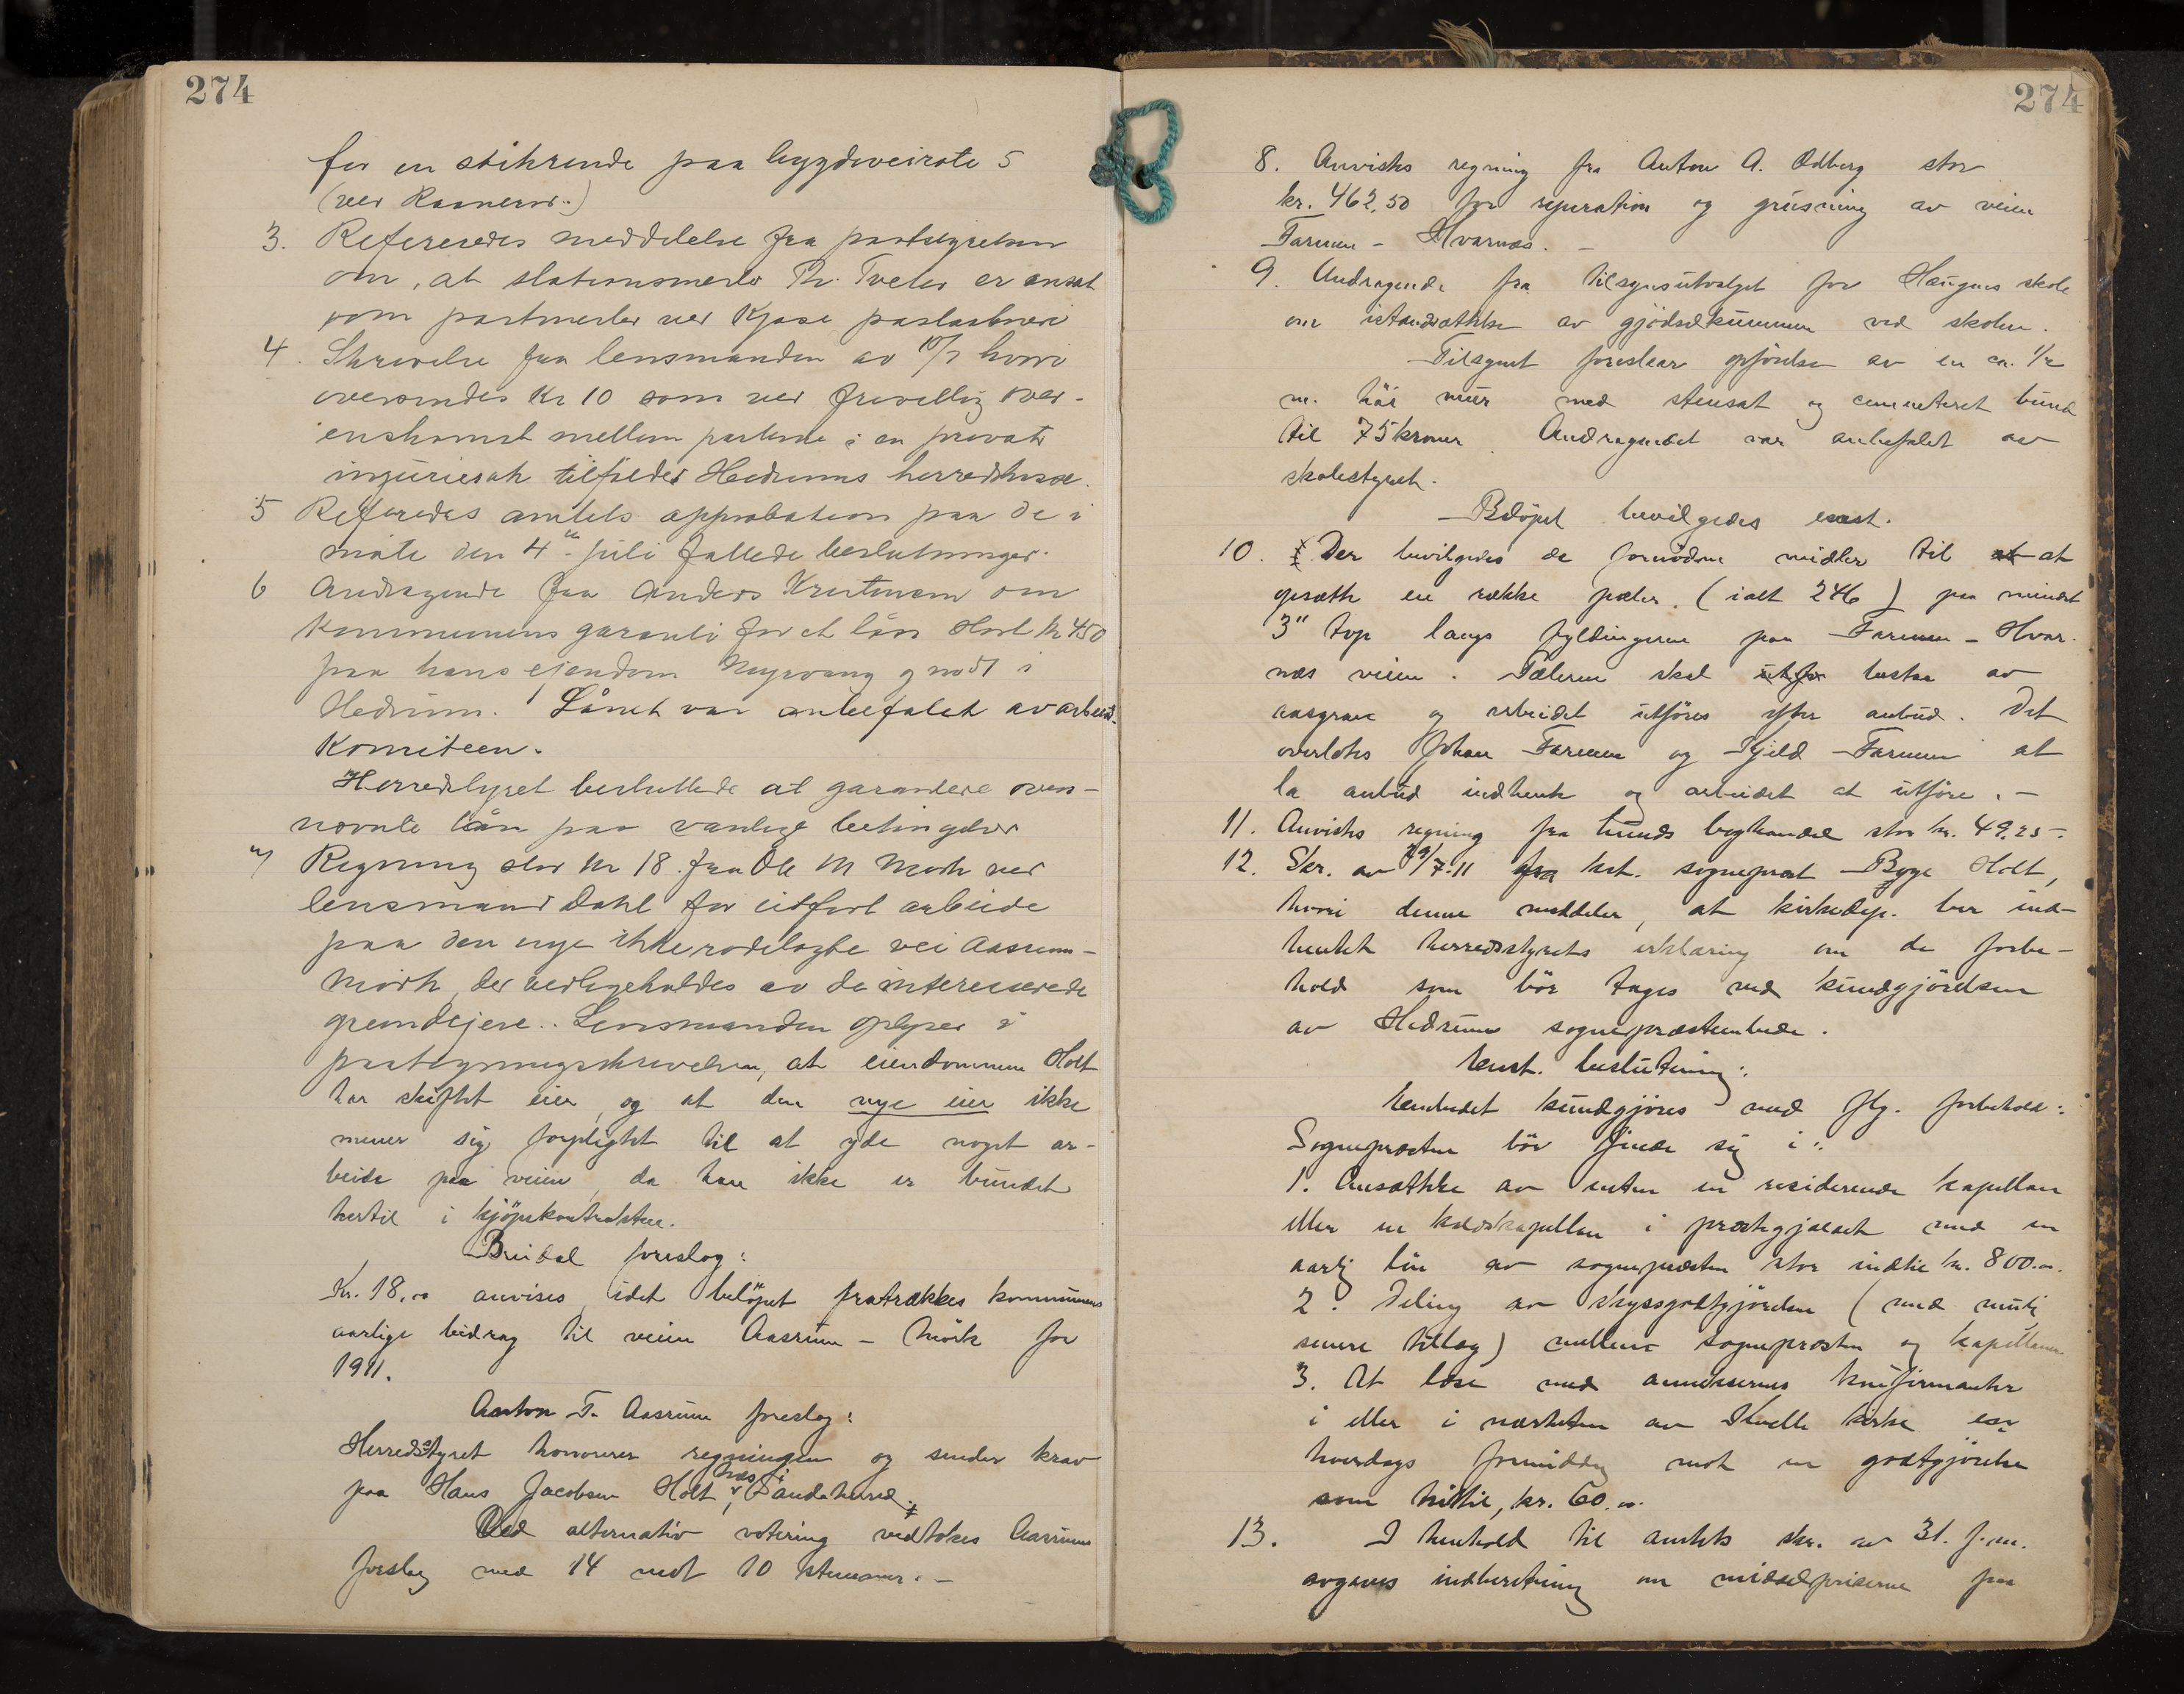 274
for en stikrende paa bygdeveirote 5
(ved Raanerød.)
3. Refereredes meddelelse fra poststyrelsen
om, at stationsmester Th. Tveter er ansat
som postmester ved Kjose postaabneri
4. Skrivelse fra lensmanden av 10/7 hvori
oversendes Kr 10 som ved frivillig over-
enskomst mellem parterne i en privat
injuriesak tilfalder Hedrums herredskasse.
5 Refereredes amtets approbation paa de i
møte den 4de juli fattede beslutninger.
6 Andragende fra Anders Kristensen om
Kommunens garanti for et lån stort kr 450
paa hans ejendom Myrvang g no 51 i
Hedrum. Lånet var anbefalet av arbeids-
Komiteen.
Herredstyret besluttede at garandere oven-
nævnte lån paa vanlige betingelser
7 Regning stor kr 18. fra Ole M Mørk ved
lensmand Dahl for utført arbeide
paa den nye ikke rodelagte vei Aasrum-
Mørk, der vedligeholdes av de interesserede
grundejere. Lensmanden oplyser i
paategningsskrivelsen, at eiendommen Holt
har skiftet eier, og at den nye eier ikke
mener sig forpligtet til at yde noget ar-
beide paa veien, da han ikke er bundet
hertil i kjöpekontrakten.
Bredal foreslog:
Kr. 18.00 anvises, idet belöpet fratrækkes kommunens
aarlige bidrag til veien Aasrum - Mörk for
1911.
Anton T. Aasrum foreslog:
Herredsstyret honorerer regningen og sender krav
paa Hans Jacobsen Holt, Sandeherred.
Ved alternativ votering vedtokes Aasrums
forslag med 14 mot 10 stemmer. -
274
8. Anvistes regning fra Anton A. Ødberg stor
kr. 462,50 for reparation og grusning av veien
Farmen - Hvarnes. -
9. Andragende fra tilsynsutvalget for Haugens skole
om istandsættelse av gjödselkummen ved skolen.
Tilsynet foreslaar opförelse av en ca. 1/2
m. höi mur med stensat og cementeret bund
til 75 kroner. Andragendet var anbefalet av
skolestyret.
Belöpet bevilgedes enst.
10. Der bevilgedes de fornödne midler til at at
opsætte en række pæler (ialt 246) paa mindst
3" top langs fyldingerne paa Farmen - Hvar-
næs veien. Pælerne skal utfør bestaa av
aasgran og arbeidet utföres efter anbud. Det
overlotes Johan Farmen og Kjeld Farmen at
la anbud indhente og arbeidet at utföre. -
11. Anvistes regning fra Lunds boghandel stor kr. 49,25 -.
12. Skr. av 29/7-11 fra kst. sogneprest Byge Holt,
hvori denne meddeler, at kirkedep. ber ind-
hentet herredsstyrets erklæring om de forbe-
hold som bör tages ved kundgjörelsen
av Hedrum sogneprestembede.
Enst. beslutning:
Embedet kundgjöres med flg. forbehold:
Sognepresten bör finde sig i:
1. Ansættelse av enten en residerende kapellan
eller en kaldskapellan i prestegjældet med en
aarlig lön av sognepresten stor indtil kr. 800.00.
2. Deling av skyssgodtgjörelsen (med mulig
senere tillæg) mellem sognepresten og kapellanen.
3. At læse med annekserens konfirmanter
i eller i nærheten av Kvelle kirke en
hverdags formiddag mot en godtgjörelse
som hittil, kr. 60.00.
13. I henhold til amtets skr. av 31. f.m.
avgaves indberetning om middelpriserne paa